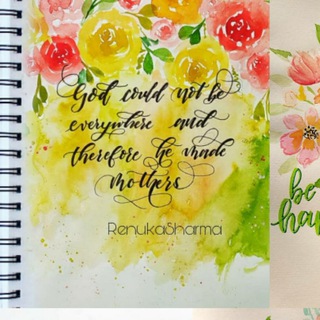 God could not be
everywhere and
therefore he made
mothers
RenukaSharma
be